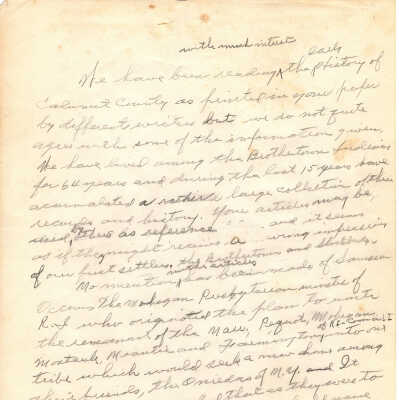 with much interest
early
We have been reading ^ the History of
Calumet County as printed in your paper
by different writers but we do not quite
agree with some of the information given.
We have lived among the Brothertown Indians
for 64 years and during the last 15 years have
accumulated a rather large collection of their
records and history. Your articles may be
used as reference and it seems
as if they might receive a wrong impression
of our first settlers, the Brothertowns and
in the articles
No mention has been made of Samson
Occum the Mohegan Presbyterian minister of
who originated the plan to unite
the remnants of the Narr, Pequot, Mohegan
of R.I. Conn. & L.I.
Montauk, and Farmington into one
tribe which would seek a new home among
their friends, the Oneidas of N.Y. and It
that as they were to